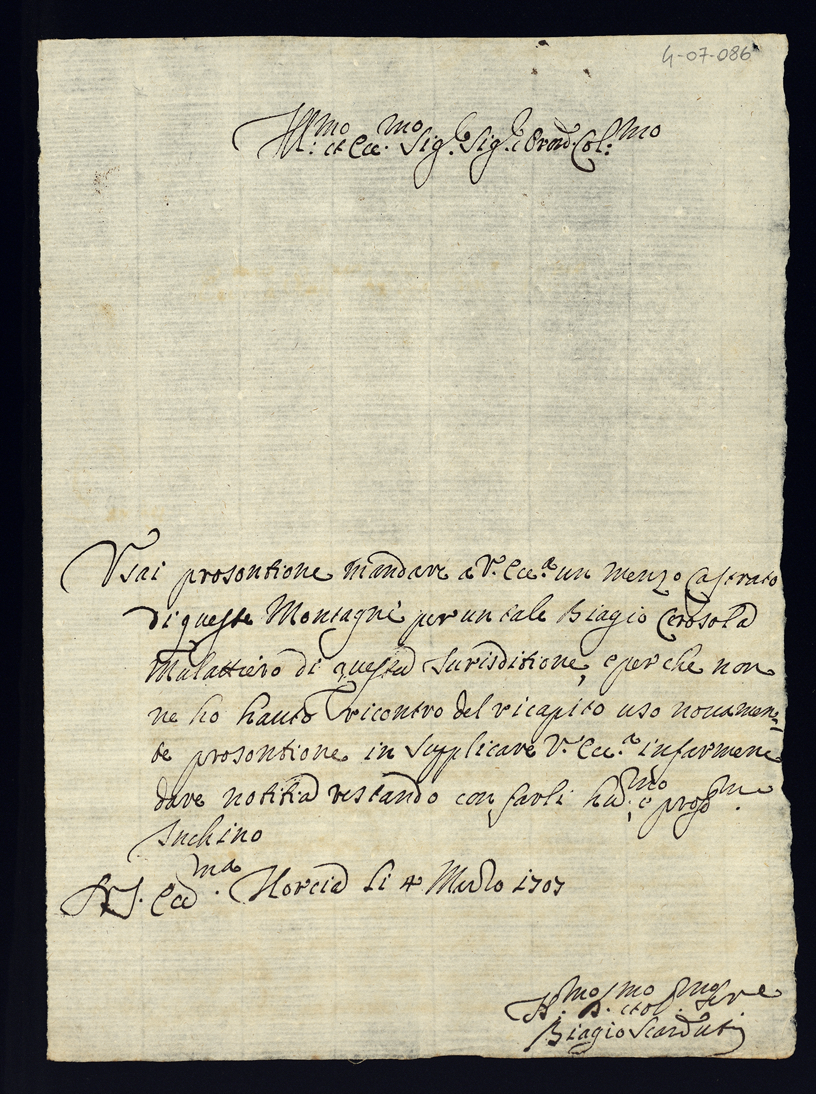 4-07-086
Ill:mo et Ecc.mo Sig.e Sig.e Pron. Col:mo
Usai prosontione mandare a V. Ecc.a un menzo Castrato
di queste Montagne per un tale Biagio Cerosola
Mulattiero di questa Jurisditione, e perche non
ne ho hauto ricontro del ricapito uso nouamen=
te prosontione in Supplicare V. Ecc.a infarmene
dare notitia restando con farli hu.mo e prof.mo
Inchino
Di V. Ecc.ma Norcia li 4 Marzo 1707
H.mo D.mo et ob.mo Ser.re
Biagio